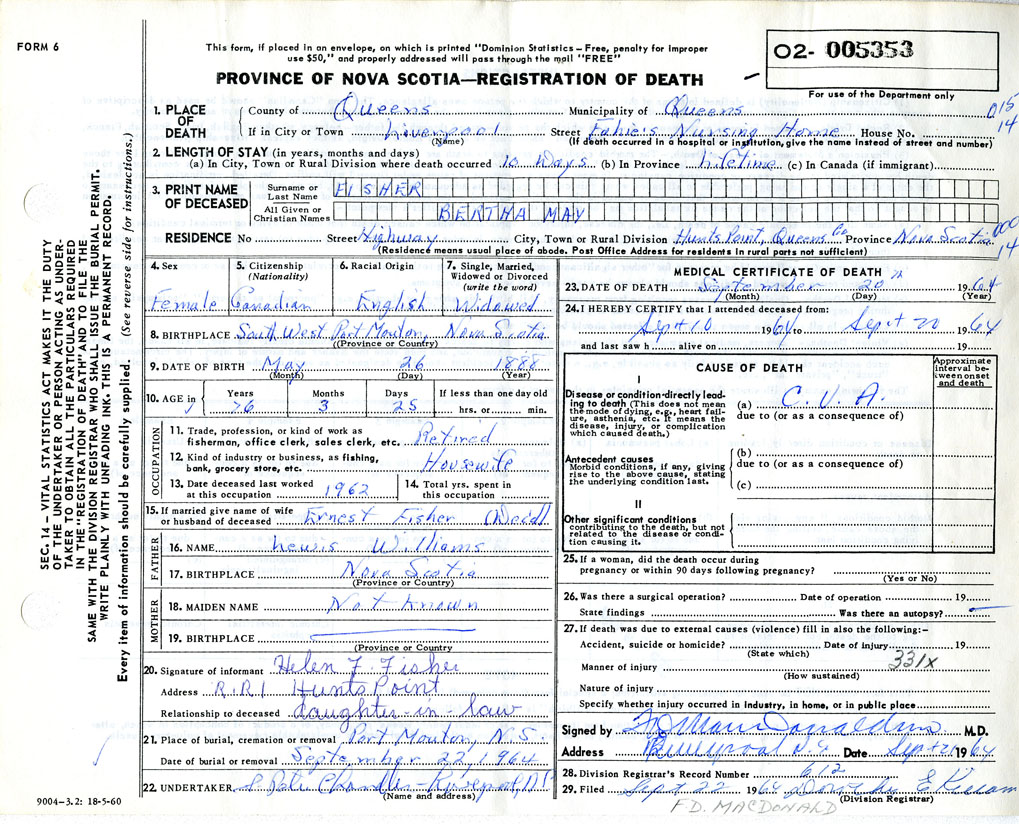 FORM 6
This form, if placed in an envelope, on which is printed "Dominion Statistics – Free, penalty for improper
use $50," and properly addressed will pass through the mail "FREE"
PROVINCE OF NOVA SCOTIA—REGISTRATION OF DEATH
02- 005353
For use of the Department only
1. PLACE OF DEATH
County of Queens Municipality of Queens 015
If in City or Town Liverpool Street Fahie's Nursing Home House No. 14
(Name) (If death occurred in a hospital or institution, give the name instead of street and number)
2. LENGTH OF STAY (in years, months and days)
(a) In City, Town or Rural Division where death occurred 10 Days (b) In Province Lifetime (c) In Canada (if immigrant)
3. PRINT NAME OF DECEASED
Surname or Last Name FISHER
All Given or Christian Names BERTHA MAY
RESIDENCE No Street Highway City, Town or Rural Division Hunts Point, Queens Co Province Nova Scotia 000 14
(Residence means usual place of abode. Post Office Address for residents in rural parts not sufficient)
4. Sex 5. Citizenship (Nationality) 6. Racial Origin 7. Single, Married, Widowed or Divorced (write the word)
Female Canadian English Widowed
8. BIRTHPLACE South West Port Mouton, Nova Scotia
(Province or County)
9. DATE OF BIRTH May 26 1888
(Month) (Day) (Year)
10. AGE in Years Months Days If less than one day old
76 3 25 hrs. or min.
OCCUPATION
11. Trade, profession, or kind of work as
fisherman, office clerk, sales clerk, etc. Retired
12. Kind of industry or business, as fishing,
bank, grocery store, etc. Housewife
13. Date deceased last worked at this occupation 1962
14. Total yrs. spent in this occupation
15. If married give name of wife
or husband of deceased Ernest Fisher (Decd)
FATHER
16. NAME Lewis Williams
17. BIRTHPLACE Nova Scotia
(Province or County)
MOTHER
18. MAIDEN NAME Not Known
19. BIRTHPLACE
(Province or County)
20. Signature of informant Helen F. Fisher
Address R.R.1 Hunts Point
Relationship to deceased daughter-in-law
21. Place of burial, cremation or removal Port Mouton, N.S.
Date of burial or removal September 22, 1964
22. UNDERTAKER Chandler Liverpool, N.S.
(Name and address)
MEDICAL CERTIFICATE OF DEATH
23. DATE OF DEATH September 20 1964
(Month) (Day) (Year)
24. I HEREBY CERTIFY that I attended deceased from:
Sept 10 1964 to Sept 20 1964
and last saw h alive on 19
CAUSE OF DEATH
Approximate interval between onset and death
I
Disease or condition directly leading to death (This does not mean
the mode of dying, e.g., heart failure, asthenia, etc. It means the
disease, injury, or complication
which caused death.)
(a) C.V.A.
due to (or as a consequence of)
Antecedent causes
Morbid conditions, if any, giving
rise to the above cause, stating
the underlying condition last.
(b)
due to (or as a consequence of)
(c)
II
Other significant conditions
contributing to the death, but not
related to the disease or condition causing it.
25. If a woman, did the death occur during
pregnancy or within 90 days following pregnancy?
(Yes or No)
26. Was there a surgical operation? Date of operation 19
State findings Was there an autopsy?
27. If death was due to external causes (violence) fill in also the following:–
Accident, suicide or homicide? Date of injury 19
(State which)
Manner of injury 331x
(How sustained)
Nature of injury
Specify whether injury occurred in industry, in home, or in public place
Signed by M.D.
Address Liverpool N.S. Date Sept 21 1964
28. Division Registrar's Record Number 612
29. Filed Sept 22 1964 Dorothy E
(Division Registrar)
F D. MACDONALD
9004–3.2: 18-5-60
SEC. 14 – VITAL STATISTICS ACT MAKES IT THE DUTY
OF THE UNDERTAKER OR PERSON ACTING AS UNDER-
TAKER TO OBTAIN ALL THE PARTICULARS REQUIRED
IN THE "REGISTRATION OF DEATH" AND TO FILE THE
SAME WITH THE DIVISION REGISTRAR WHO SHALL ISSUE THE BURIAL PERMIT.
WRITE PLAINLY WITH UNFADING INK. THIS IS A PERMANENT RECORD.
Every item of information should be carefully supplied. (See reverse side for instructions.)